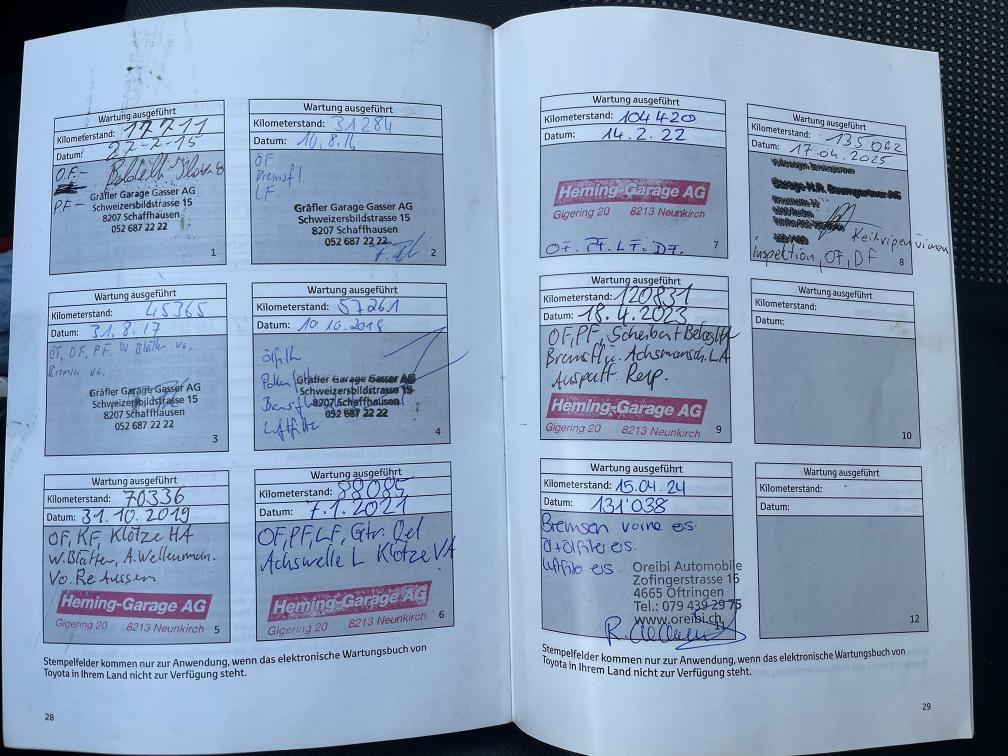 Wartung ausgeführt
Kilometerstand: 17211
Datum: 22-2-15
O.F.-
P.F-
Gräfler Garage Gasser AG
Schweizersbildstrasse 15
8207 Schaffhausen
052 687 22 22
1
Wartung ausgeführt
Kilometerstand: 31284
Datum: 10.8.16
ÖF
Bremsfl.
LF
Gräfler Garage Gasser AG
Schweizersbildstrasse 15
8207 Schaffhausen
052 687 22 22
2
Wartung ausgeführt
Kilometerstand: 45365
Datum: 31.8.17
ÖF, DF, PF, W Blätter vo.
Bremsen vo.
Gräfler Garage Gasser AG
Schweizersbildstrasse 15
8207 Schaffhausen
052 687 22 22
3
Wartung ausgeführt
Kilometerstand: 57261
Datum: 10.10.2018
Ölfilt
Gräfler Garage Gasser AG
Schweizersbildstrasse 15
8207 Schaffhausen
052 687 22 22
Luftfilter
4
Wartung ausgeführt
Kilometerstand: 70336
Datum: 31.10.2019
OF, KF, Klötze HA
W.Blätter, A.Wellenman.
Vo. Re Aussen
Heming-Garage AG
Gigering 20 8213 Neunkirch
5
Wartung ausgeführt
Kilometerstand: 88085
Datum: 7.1.2021
OF, PF, LF, Gtr. Oel
Achswelle L Klötze VA
Heming-Garage AG
Gigering 20 8213 Neunkirch
6
Stempelfelder kommen nur zur Anwendung, wenn das elektronische Wartungsbuch von
Toyota in Ihrem Land nicht zur Verfügung steht.
28
Wartung ausgeführt
Kilometerstand: 104420
Datum: 14.2.22
Heming-Garage AG
Gigering 20 8213 Neunkirch
OF. PF. LF. DF.
7
Wartung ausgeführt
Kilometerstand: 135062
Datum: 17.04.2025
Garage H.R. Baumgartner AG
Keilripenriemen
inspektion, OF, DF
8
Wartung ausgeführt
Kilometerstand: 120831
Datum: 18.4.2023
OF, PF, Scheiben + Beläge HA
Bremsfl. u. Achsmansch. LA
Auspuff Rep.
Heming-Garage AG
Gigering 20 8213 Neunkirch
9
Wartung ausgeführt
Kilometerstand:
Datum:
10
Wartung ausgeführt
Kilometerstand: 15.04.24
Datum: 131'038
Bremsen vorne es.
Öl+ölfilter es.
Luftfilter es.
Oreibi Automobile
Zofingerstrasse 16
4665 Oftringen
Tel.: 079 439 29 75
www.oreibi.ch
11
Wartung ausgeführt
Kilometerstand:
Datum:
12
Stempelfelder kommen nur zur Anwendung, wenn das elektronische Wartungsbuch von
Toyota in Ihrem Land nicht zur Verfügung steht.
29